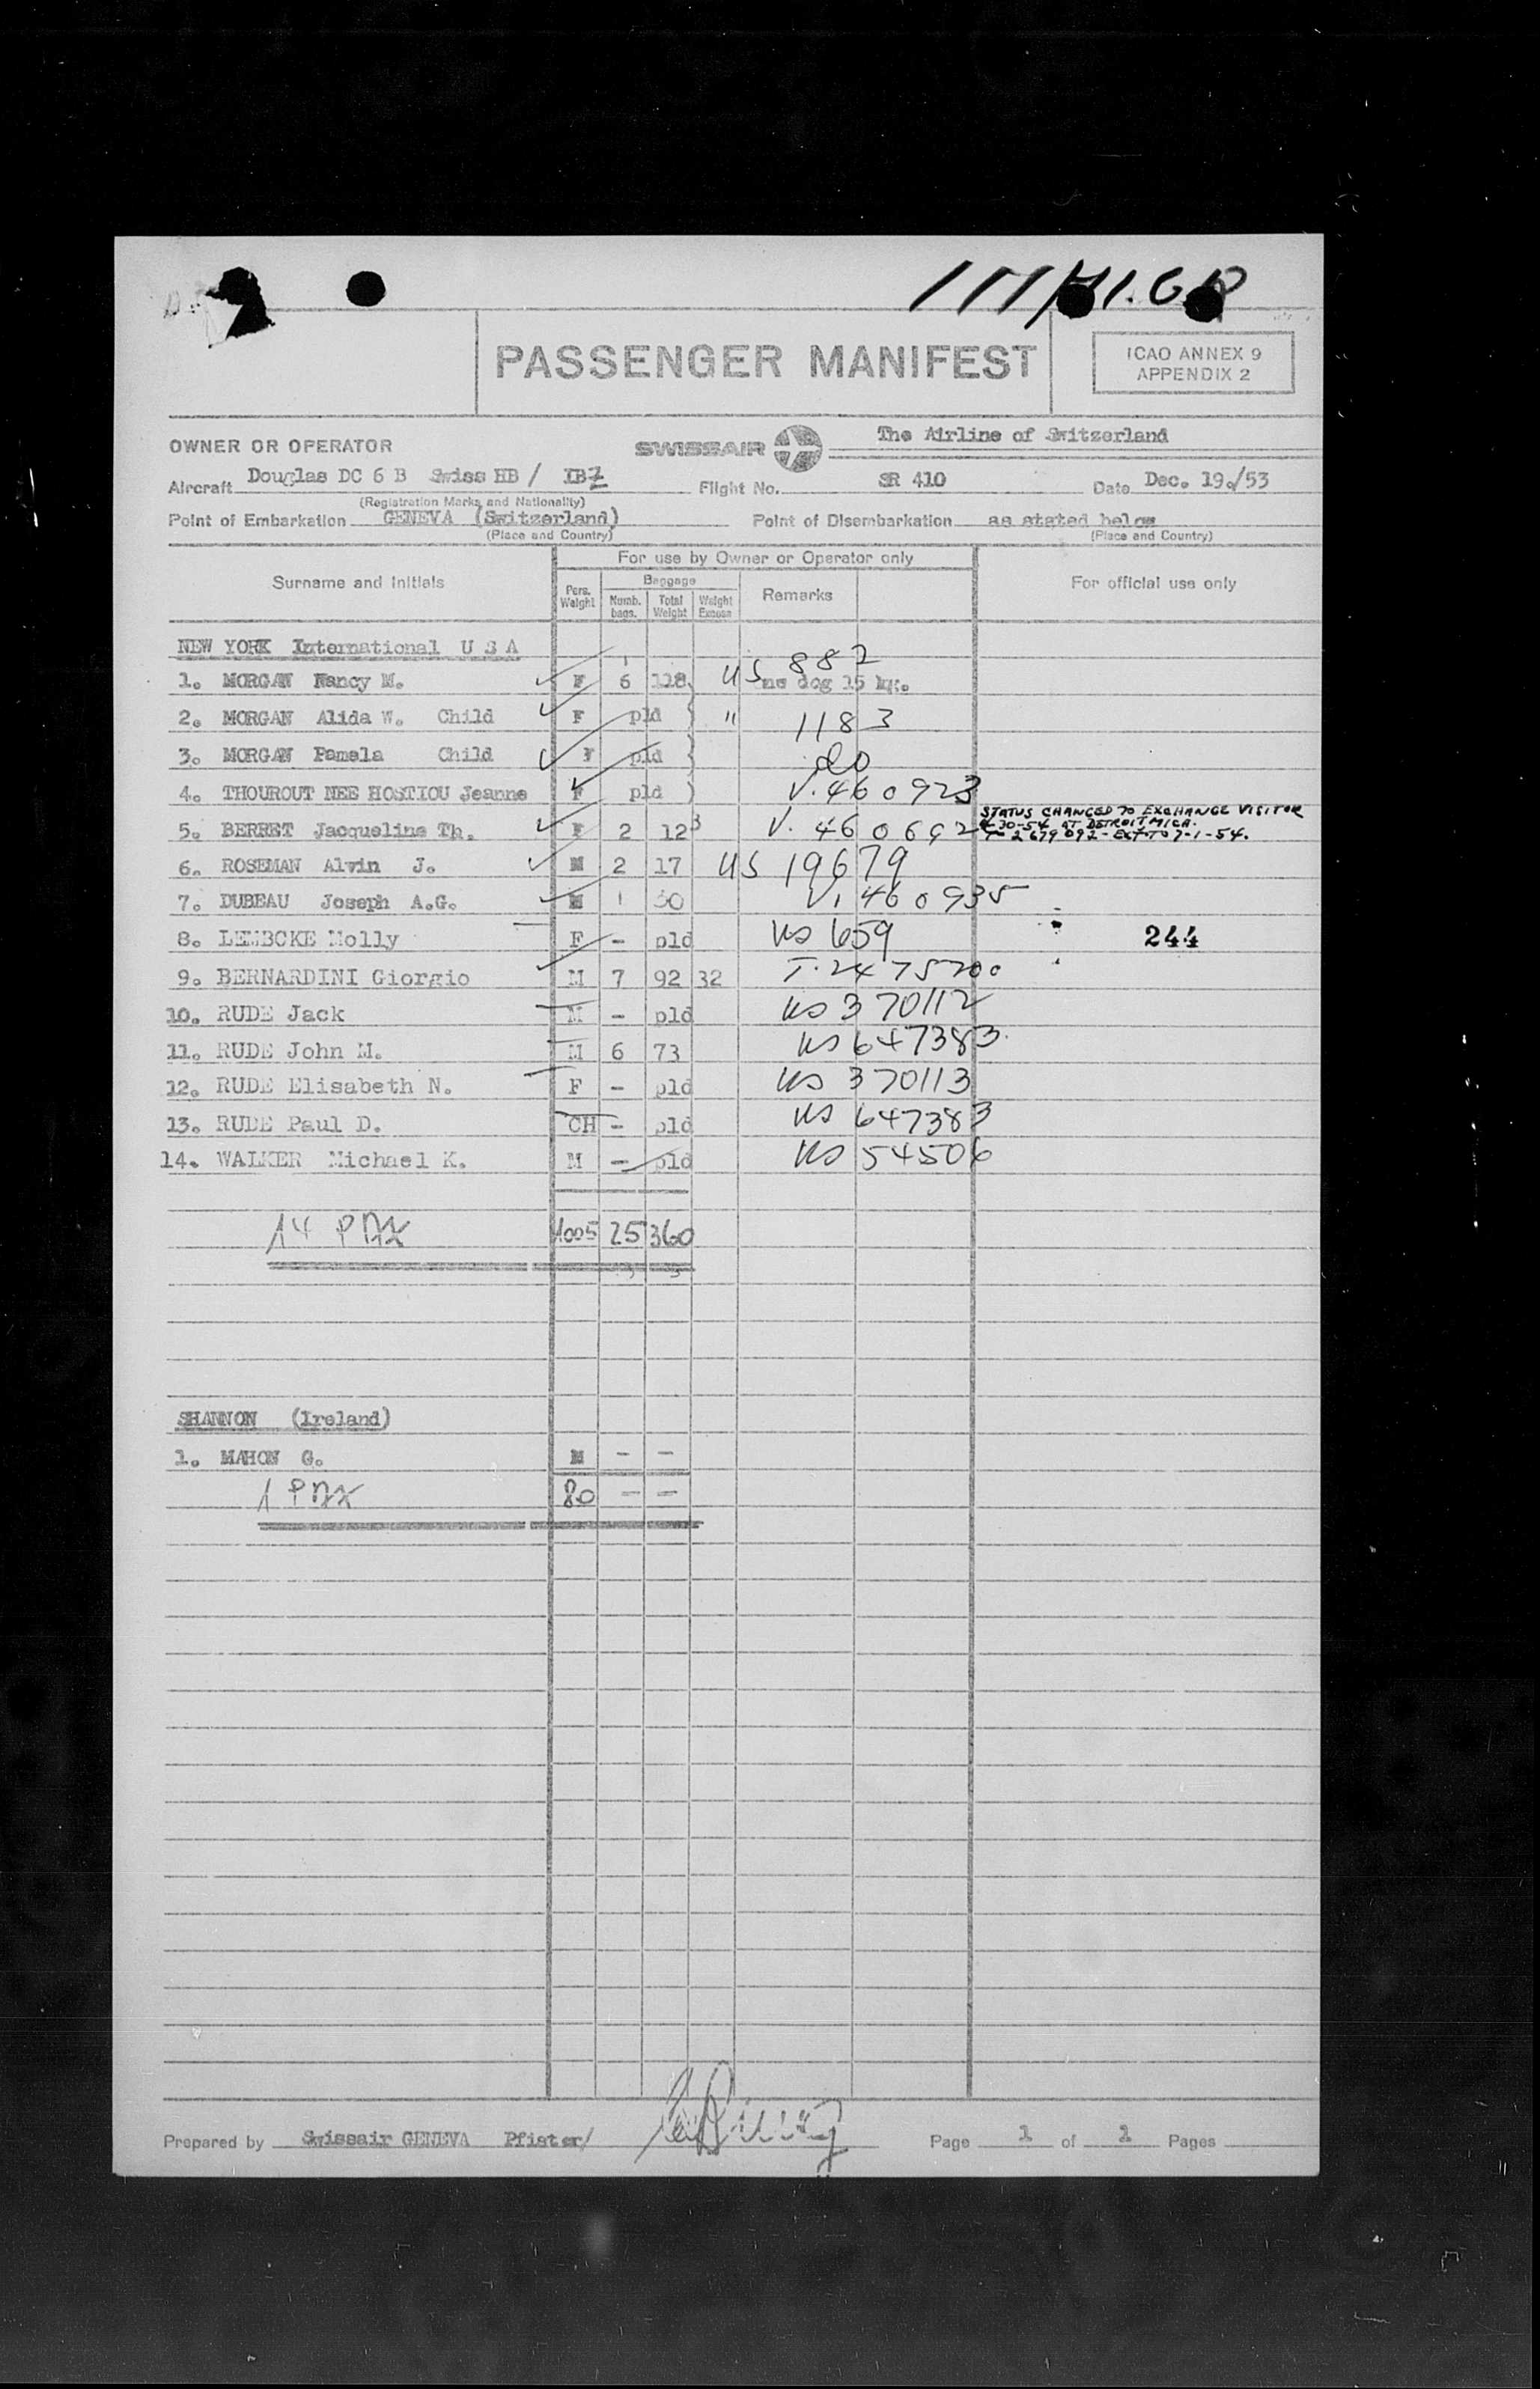 111/41.6R
PASSENGER MANIFEST
ICAO ANNEX 9
APPENDIX 2
OWNER OR OPERATOR SWISSAIR The Airline of Switzerland
Aircraft Douglas DC 6 B Swiss HB / IBZ Flight No. SR 410 Date Dec. 19./53
(Registration Marks and Nationality)
Point of Embarkation GENEVA (Switzerland) Point of Disembarkation as stated below
(Place and Country) (Place and Country)
For use by Owner or Operator only
Surname and Initials Pers. Weight Baggage Numb. bags. Total Weight Weight Excess Remarks For official use only
NEW YORK International U S A
1. MORGAN Nancy M. F 6 118 US 882 dog 15 kg.
2. MORGAN Alida W. Child F pld " 1183
3. MORGAN Pamela Child F pld do
4. THOUROUT NEE HOSTIOU Jeanne F pld V. 460923
5. BERRET Jacqueline Th. F 2 12 V. 460692 STATUS CHANGED TO EXCHANGE VISITOR
-30-54 AT DETROIT, MICH.
2679092 - EXT. TO 7-1-54.
6. ROSEMAN Alvin J. M 2 17 US 19679
7. DUBEAU Joseph A.G. M 1 30 V, 460935
8. LEMBCKE Molly F - pld US 659 244
9. BERNARDINI Giorgio M 7 92 32 T. 2475700
10. RUDE Jack M - pld US 370112
11. RUDE John M. M 6 73 US 647383
12. RUDE Elisabeth N. F - pld US 370113
13. RUDE Paul D. CH - pld US 647383
14. WALKER Michael K. M - pld US 54506
14 PAX 1005 25 360
SHANNON (Ireland)
1. MAHON G. M - -
1 PAX 80 - -
Prepared by Swissair GENEVA Pfister/ Page 1 of 1 Pages